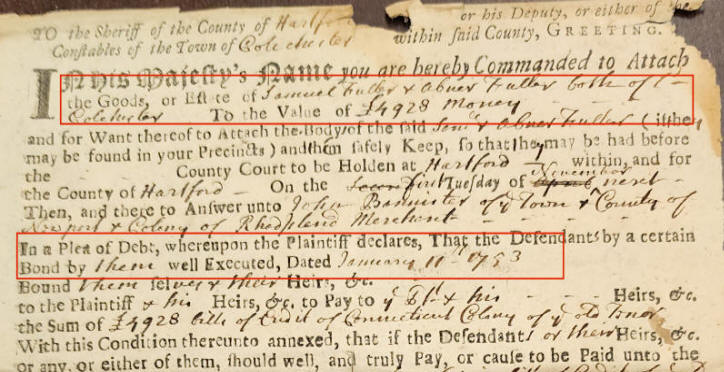 TO the Sheriff of the County of Hartford or his Deputy, or either of the
Constables of the Town of Colchester within said County, GREETING.
IN HIS Majesty's Name you are hereby Commanded to Attach
the Goods, or Estate of Samuel Fuller & Abner Fuller both of
Colchester To the Value of £4928 Money
and for Want thereof to Attach the Body of the said Sam.ll & Abner Fuller (if they
may be found in your Precincts) and them safely Keep, so that they may be had before
the County Court to be Holden at Hartford within, and for
the County of Hartford On the first Tuesday of November next
Then, and there to Answer unto John Bannister of ye Town & County of
Newport & Colony of Rhodisland Merchant
In a Plea of Debt, whereupon the Plaintiff declares, That the Defendants by a certain
Bond by them well Executed, Dated January 11th 1753
Bound them selves & their Heirs, &c.
to the Plaintiff & his Heirs, &c. to Pay to ye Plt & his Heirs, &c.
the Sum of £4928 bills of Credit of Connecticut Colony of ye old Tenor
With this Condition thereunto annexed, that if the Defendants or their Heirs, &c.
or any, or either of them, should well, and truly Pay, or cause to be Paid unto the